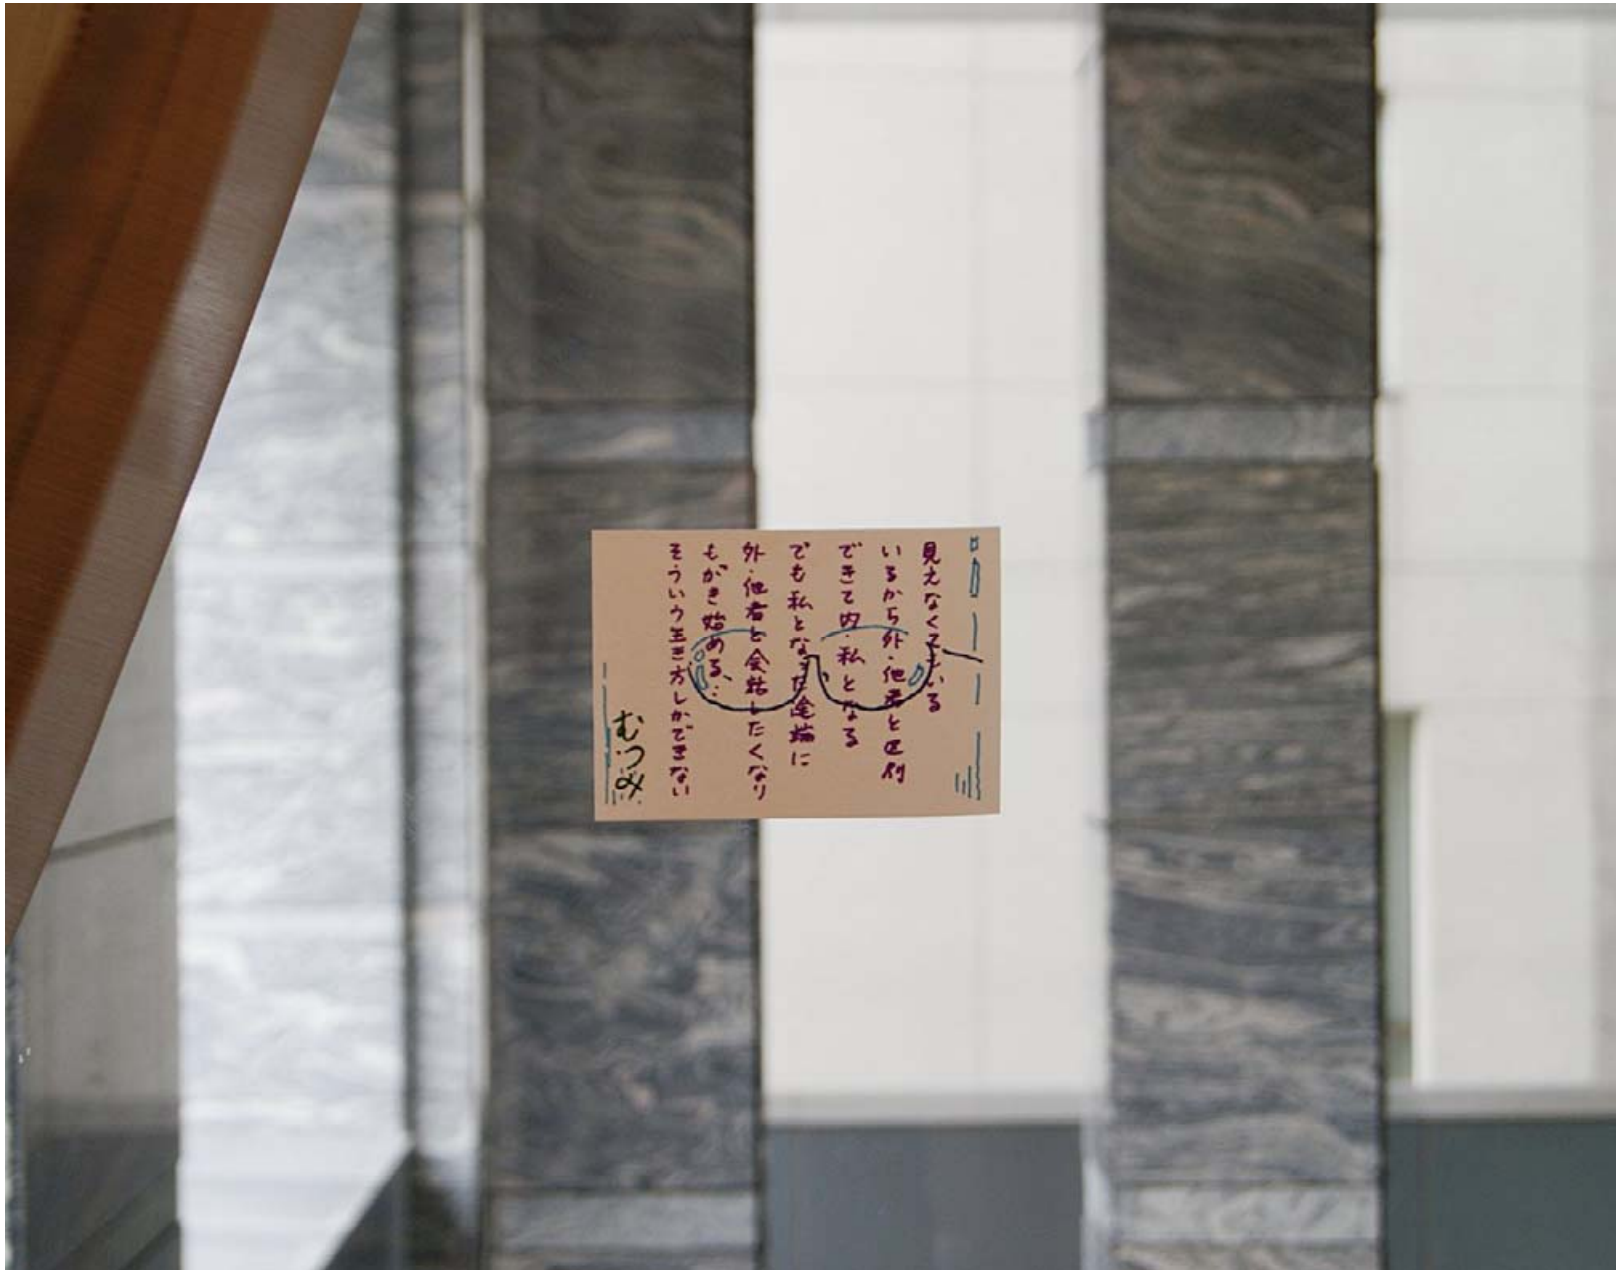 見えなくてもいる
いるから外・他者と区別
できて内・私となる
でも私となった途端に
外・他者と会話したくなり
もがき始める…
そういう生き方しかできない
むつみ